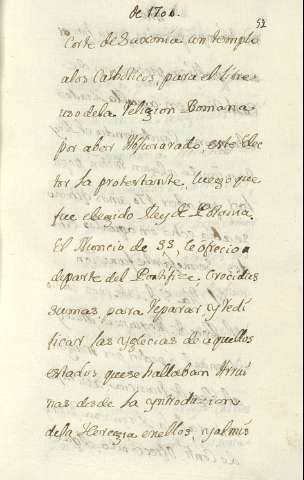 de 1700.
52
Corte de Saxonia un templo
alos Catholicos, para el libre
uso dela Religion Romana
por aber Abjurarado, este Elec
tor la protestante, luego que
fue elegido Rey de Polonia.
El Nuncio de SS, le ofrecio
departe del Pontifize, Crecidas
sumas, para Reparar, y Redi
ficar las Yglecias de aquellos
estados que se hallaban Arrui
nas desde la yntroduzion
dela Heregia en ellos, y al mis